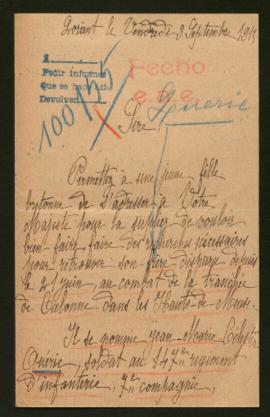 Lorient le Vendredi 3 Septembre 1915
1
Pedir informes
Que se haga
Devolver
100155
Fecho
e.e.e.
Querie
Sire,
Permettez à une jeune fille
bretonne de s'adresser à Votre
Majesté pour la supplier de vouloir
bien faire faire des recherches nécessaires
pour retrouver son frère disparu depuis
le 21 juin, au combat de la tranchée
de Calonne dans les Hauts-de-Meuse.
Il se nomme Jean-Marie Célestin
Querie, soldat au 147e régiment
d'infanterie, 7e compagnie,